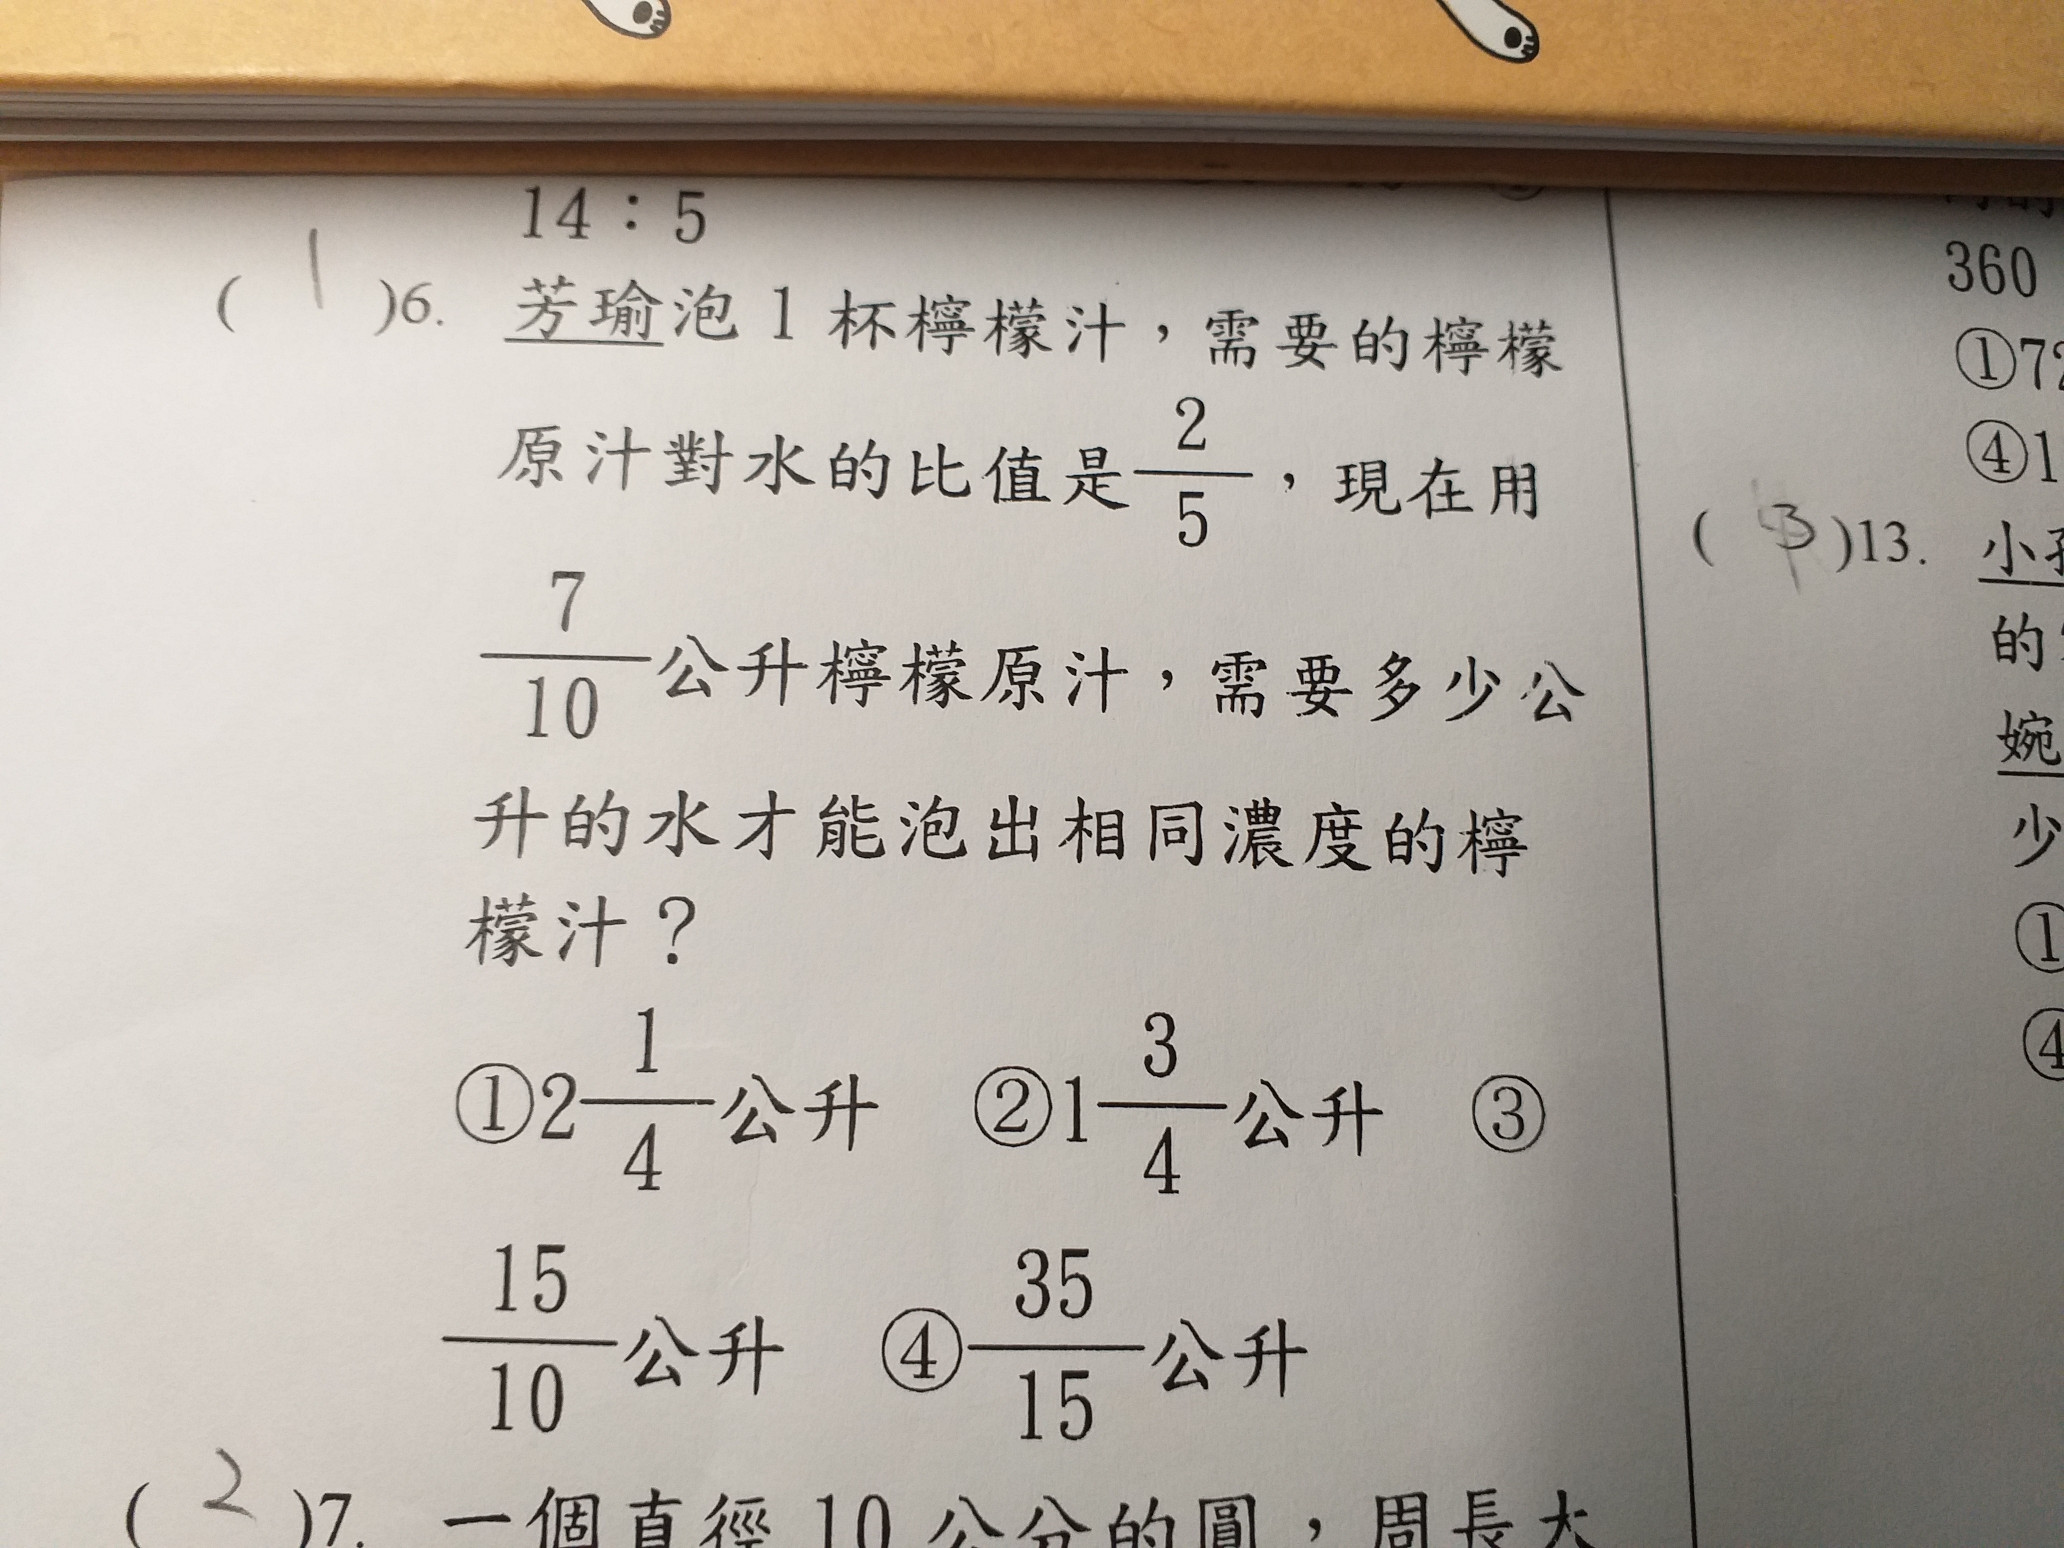 14：5
( 1 )6. 芳瑜泡 1 杯檸檬汁，需要的檸檬
原汁對水的比值是 2/5，現在用
7/10 公升檸檬原汁，需要多少公
升的水才能泡出相同濃度的檸
檬汁？
①2 1/4 公升 ②1 3/4 公升 ③
15/10 公升 ④ 35/15 公升
( 2 )7. 一個直徑 10 公分的圓，周長大
360
①72
④1
( 3 )13. 小
的
婉
少
①
④